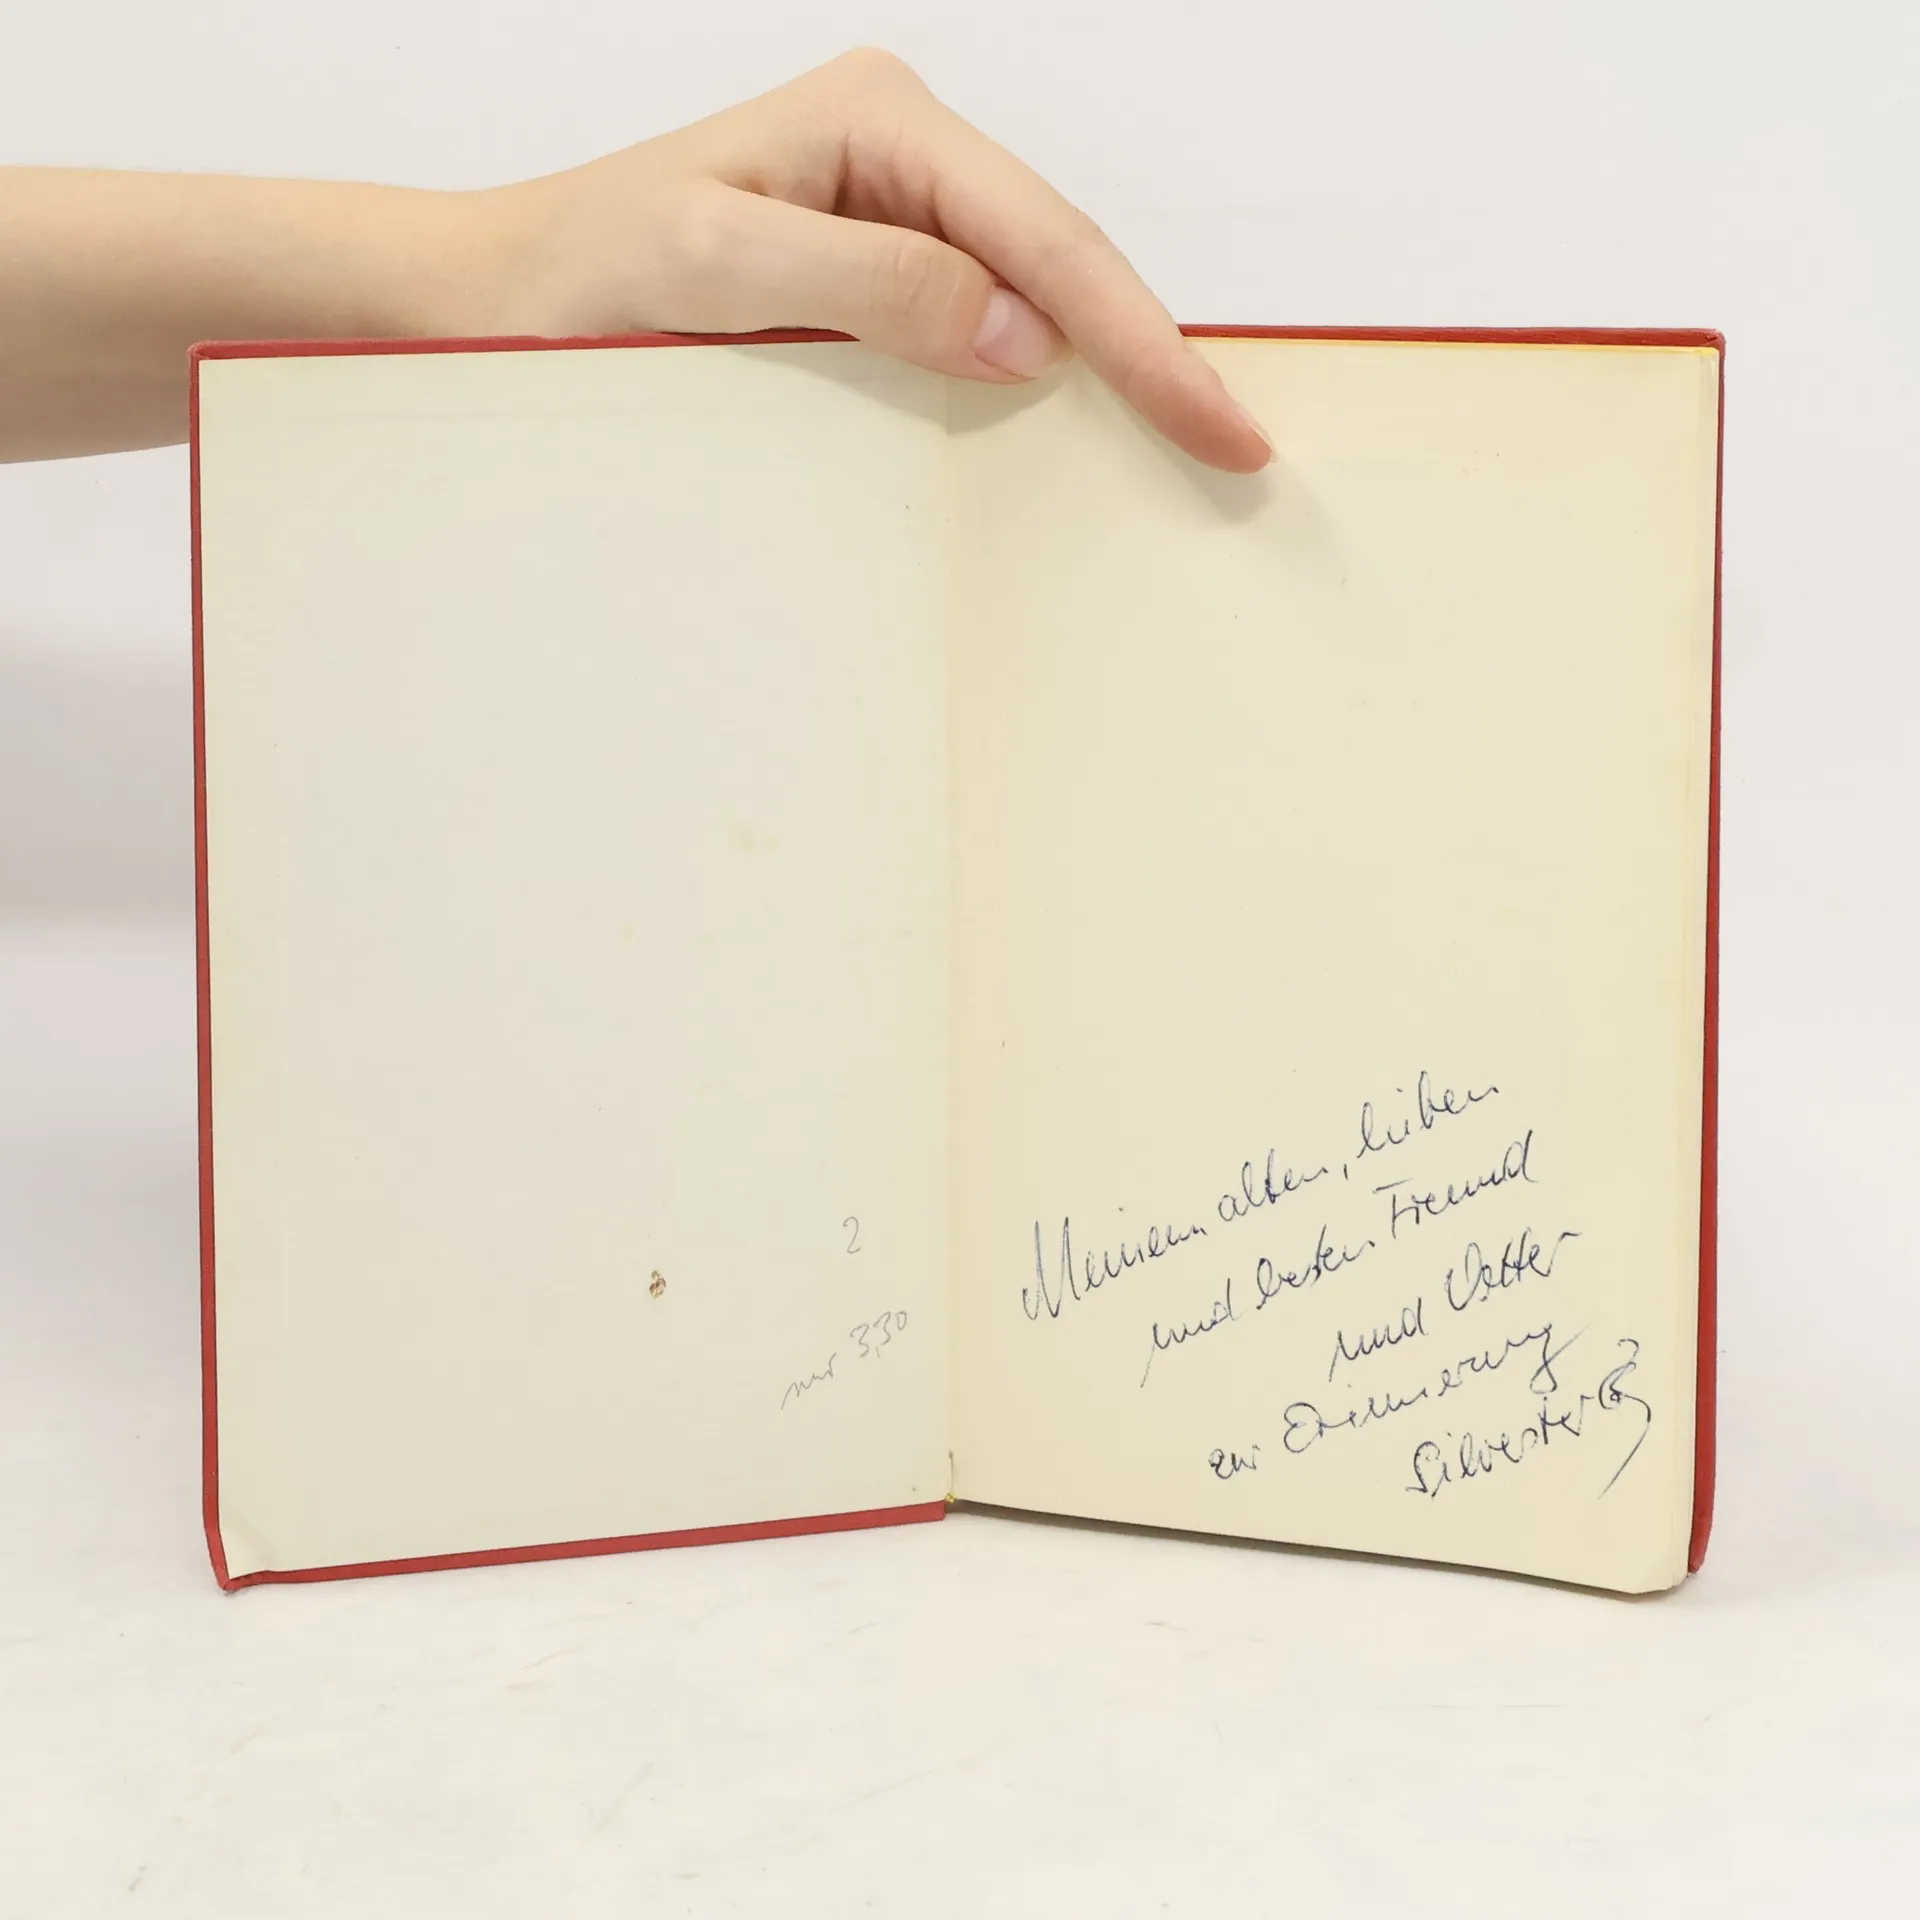 2
nur 3,30
Meinem alten, lieben
und besten Freund
und Vetter
zur Erinnerung
Silvester